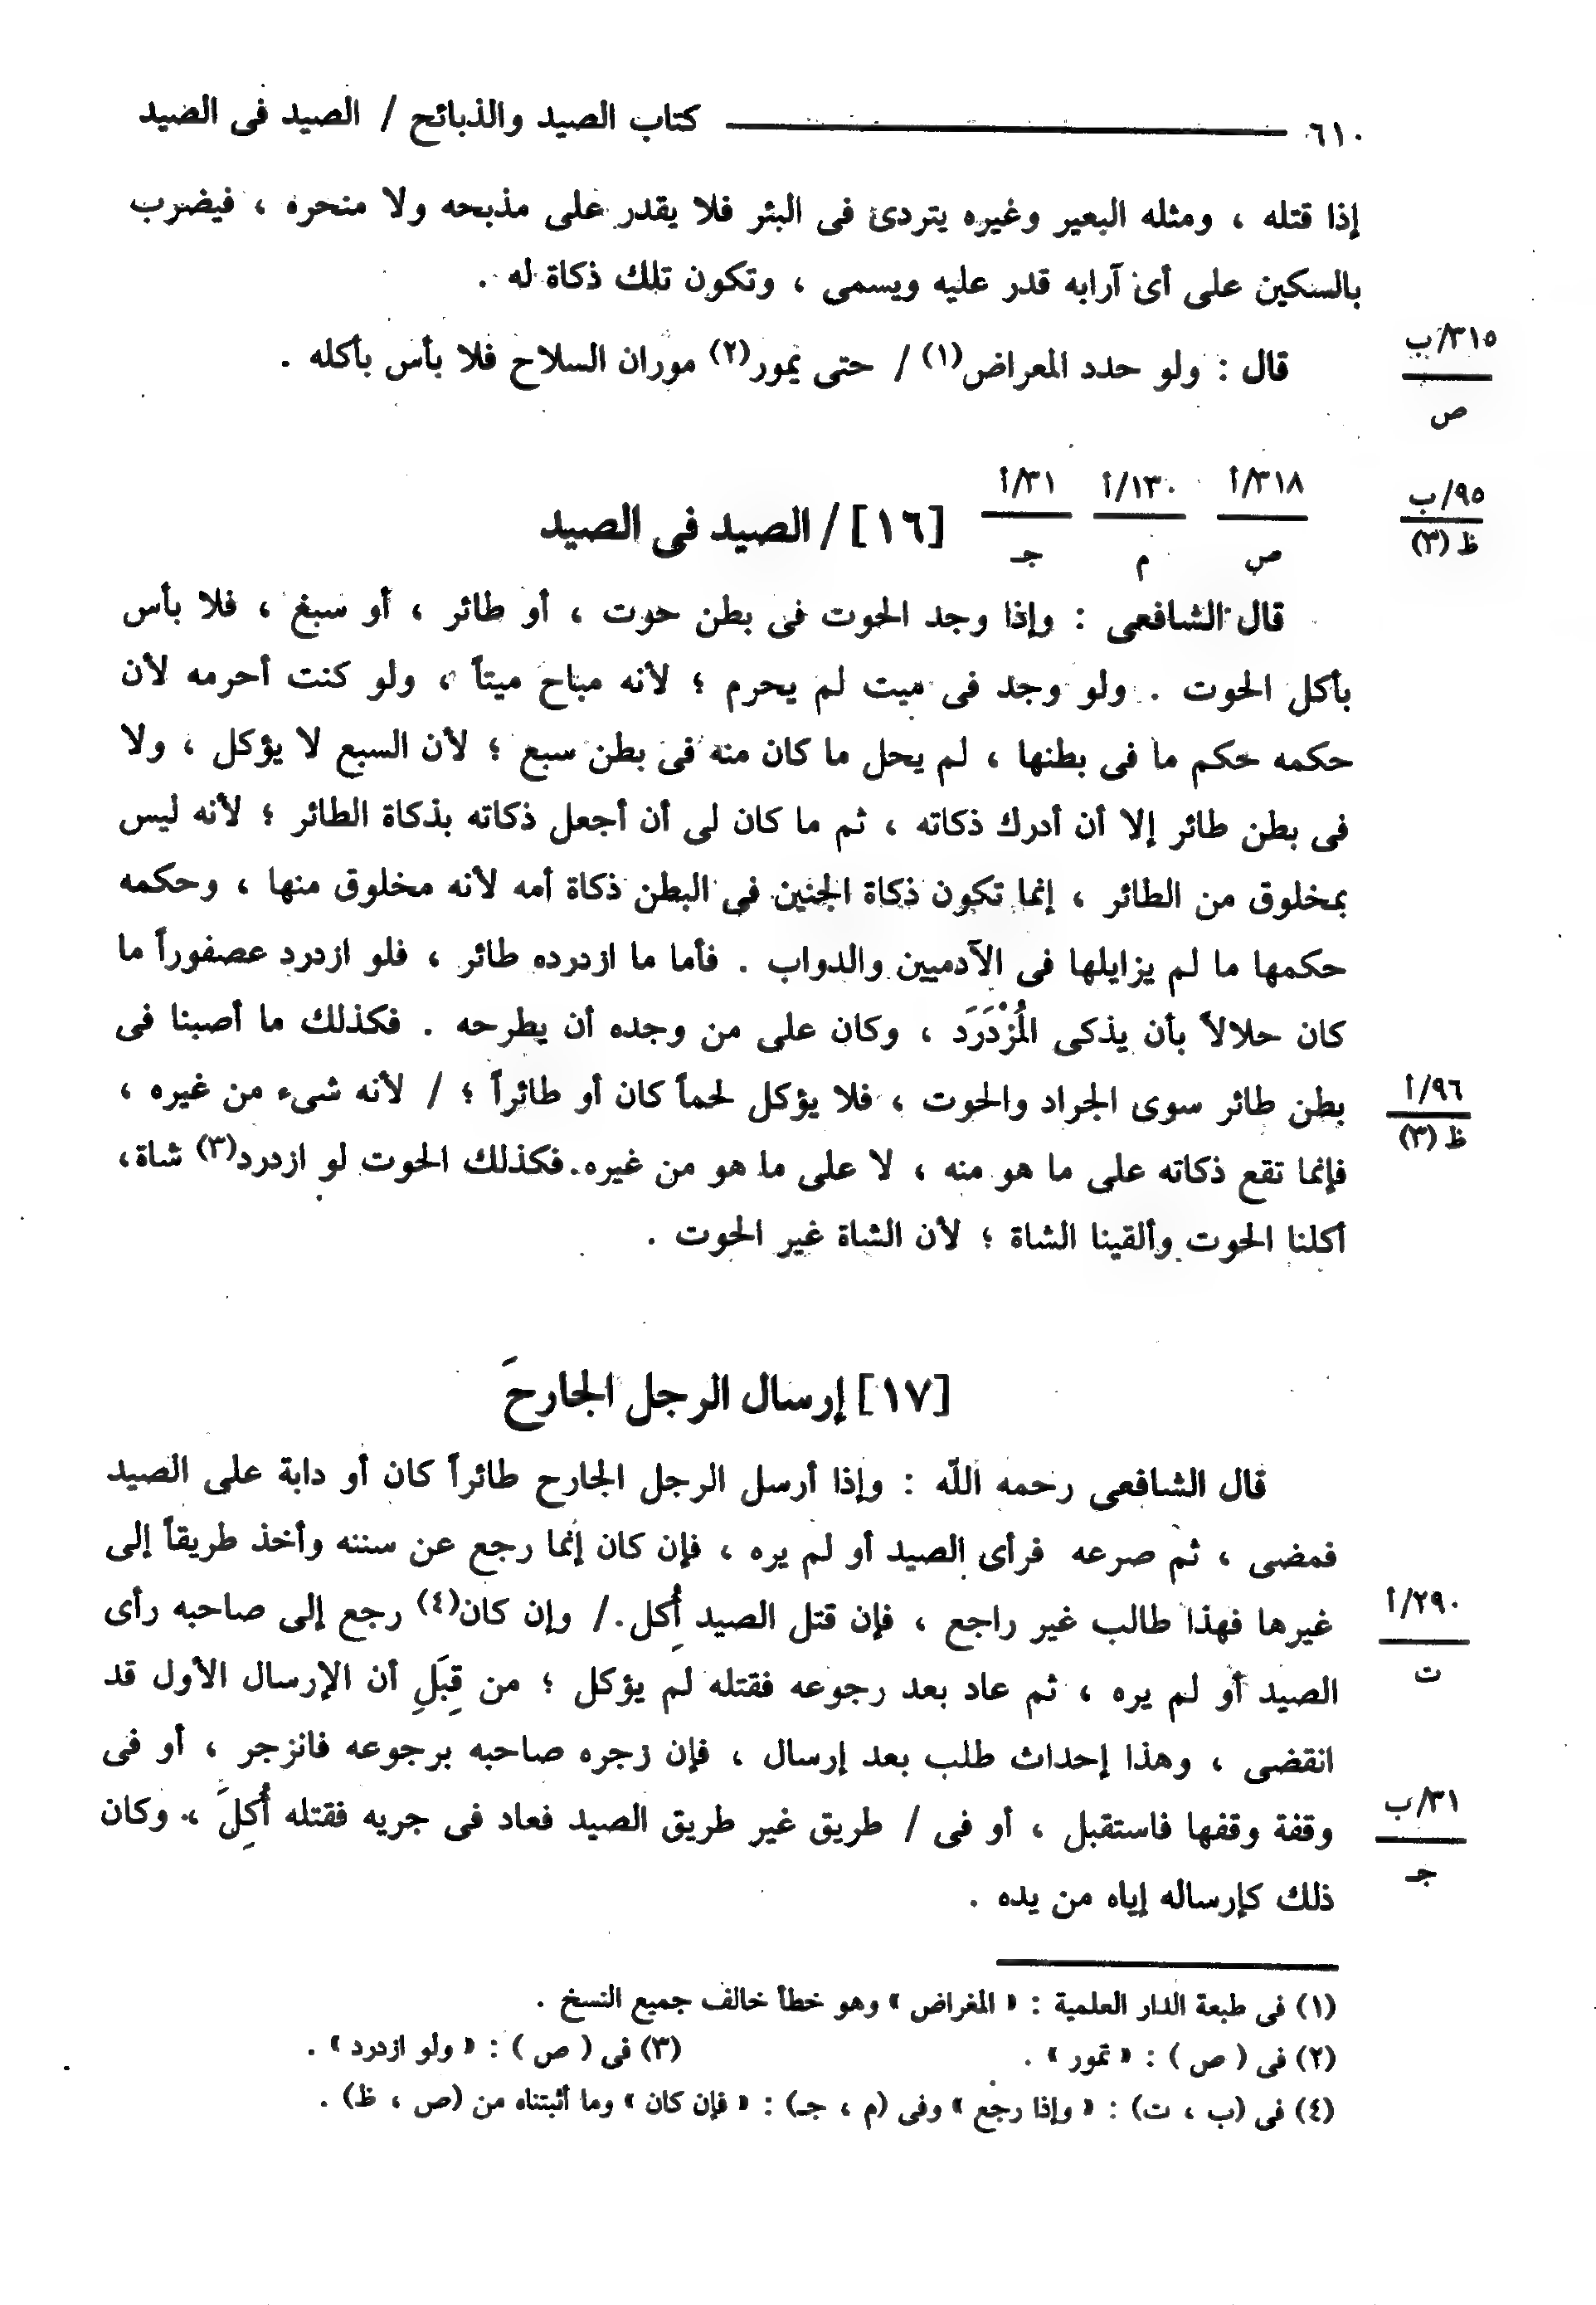 ٦١٠ كتاب الصيد والذبائح / الصيد فى الصيد
إذا قتله ، ومثله البعير وغيره يتردى فى البئر فلا يقدر على مذبحه ولا منحره ، فيضرب
بالسكين على أى آرابه قدر عليه ويسمى ، وتكون تلك ذكاة له .
٣١٥/ب
ص
قال : ولو حدد المعراض(١) / حتى يمور(٢) موران السلاح فلا بأس بأكله .
٩٥/ب
ظ (٣)
٣١٨/أ
ص
١٣٠/أ
م
٣١/أ
جـ
[١٦] / الصيد فى الصيد
قال الشافعى : وإذا وجد الحوت فى بطن حوت ، أو طائر ، أو سبغ ، فلا بأس
بأكل الحوت . ولو وجد فى ميت لم يحرم ؛ لأنه مباح ميتاً ، ولو كنت أحرمه لأن
حكمه حكم ما فى بطنها ، لم يحل ما كان منه فى بطن سبع ؛ لأن السبع لا يؤكل ، ولا
فى بطن طائر إلا أن أدرك ذكاته ، ثم ما كان لى أن أجعل ذكاته بذكاة الطائر ؛ لأنه ليس
بمخلوق من الطائر ، إنما تكون ذكاة الجنين فى البطن ذكاة أمه لأنه مخلوق منها ، وحكمه
حكمها ما لم يزايلها فى الآدميين والدواب . فأما ما ازدرده طائر ، فلو ازدرد عصفوراً ما
كان حلالاً بأن يذكى المُزْدَرَد ، وكان على من وجده أن يطرحه . فكذلك ما أصبنا فى
بطن طائر سوى الجراد والحوت ، فلا يؤكل لحماً كان أو طائراً ؛ / لأنه شىء من غيره ،
٩٦/أ
ظ (٣)
فإنما تقع ذكاته على ما هو منه ، لا على ما هو من غيره. فكذلك الحوت لو ازدرد(٣) شاة،
أكلنا الحوت وألقينا الشاة ؛ لأن الشاة غير الحوت .
[١٧] إرسال الرجل الجارحَ
قال الشافعى رحمه اللّه : وإذا أرسل الرجل الجارح طائراً كان أو دابة على الصيد
فمضى ، ثم صرعه فرأى الصيد أو لم يره ، فإن كان إنما رجع عن سننه وأخذ طريقاً إلى
غيرها فهذا طالب غير راجع ، فإن قتل الصيد أُكِل . / وإن كان(٤) رجع إلى صاحبه رأى
٢٩٠/أ
ت
الصيد أو لم يره ، ثم عاد بعد رجوعه فقتله لم يؤكل ؛ من قِبَلِ أن الإرسال الأول قد
انقضى ، وهذا إحداث طلب بعد إرسال ، فإن زجره صاحبه برجوعه فانزجر ، أو فى
وقفة وقفها فاستقبل ، أو فى / طريق غير طريق الصيد فعاد فى جريه فقتله أُكِلَ ، وكان
٣١/ب
جـ
ذلك كإرساله إياه من يده .
(١) فى طبعة الدار العلمية : « المغراض » وهو خطأ خالف جميع النسخ .
(٢) فى ( ص ) : « تمور » . (٣) فى ( ص ) : « ولو ازدرد » .
(٤) فى (ب ، ت) : « وإذا رجع » وفى (م ، جـ) : « فإن كان » وما أثبتناه من (ص ، ظ) .